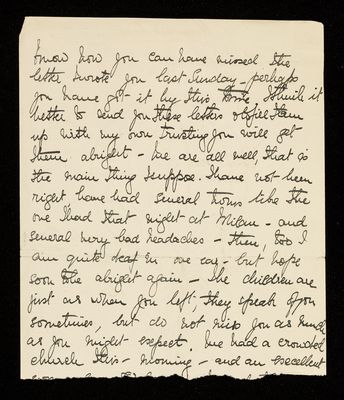 know how you can have missed the
letter I wrote you last Sunday - perhaps
you have got it by this time I think it
better to send you these letters of
up with my own trusting you will get
them alright - we are all well, that is
the main thing I suppose. I have not been
right have had several turns like the
one I had that night at Milan - and
several very bad headaches - then, too I
am quite deaf in one ear - but hope
soon to be alright again - the children are
just as when you left, they speak of you
sometimes, but do not miss you as much
as you might expect. We had a crowded
church this - morning - and an excellent